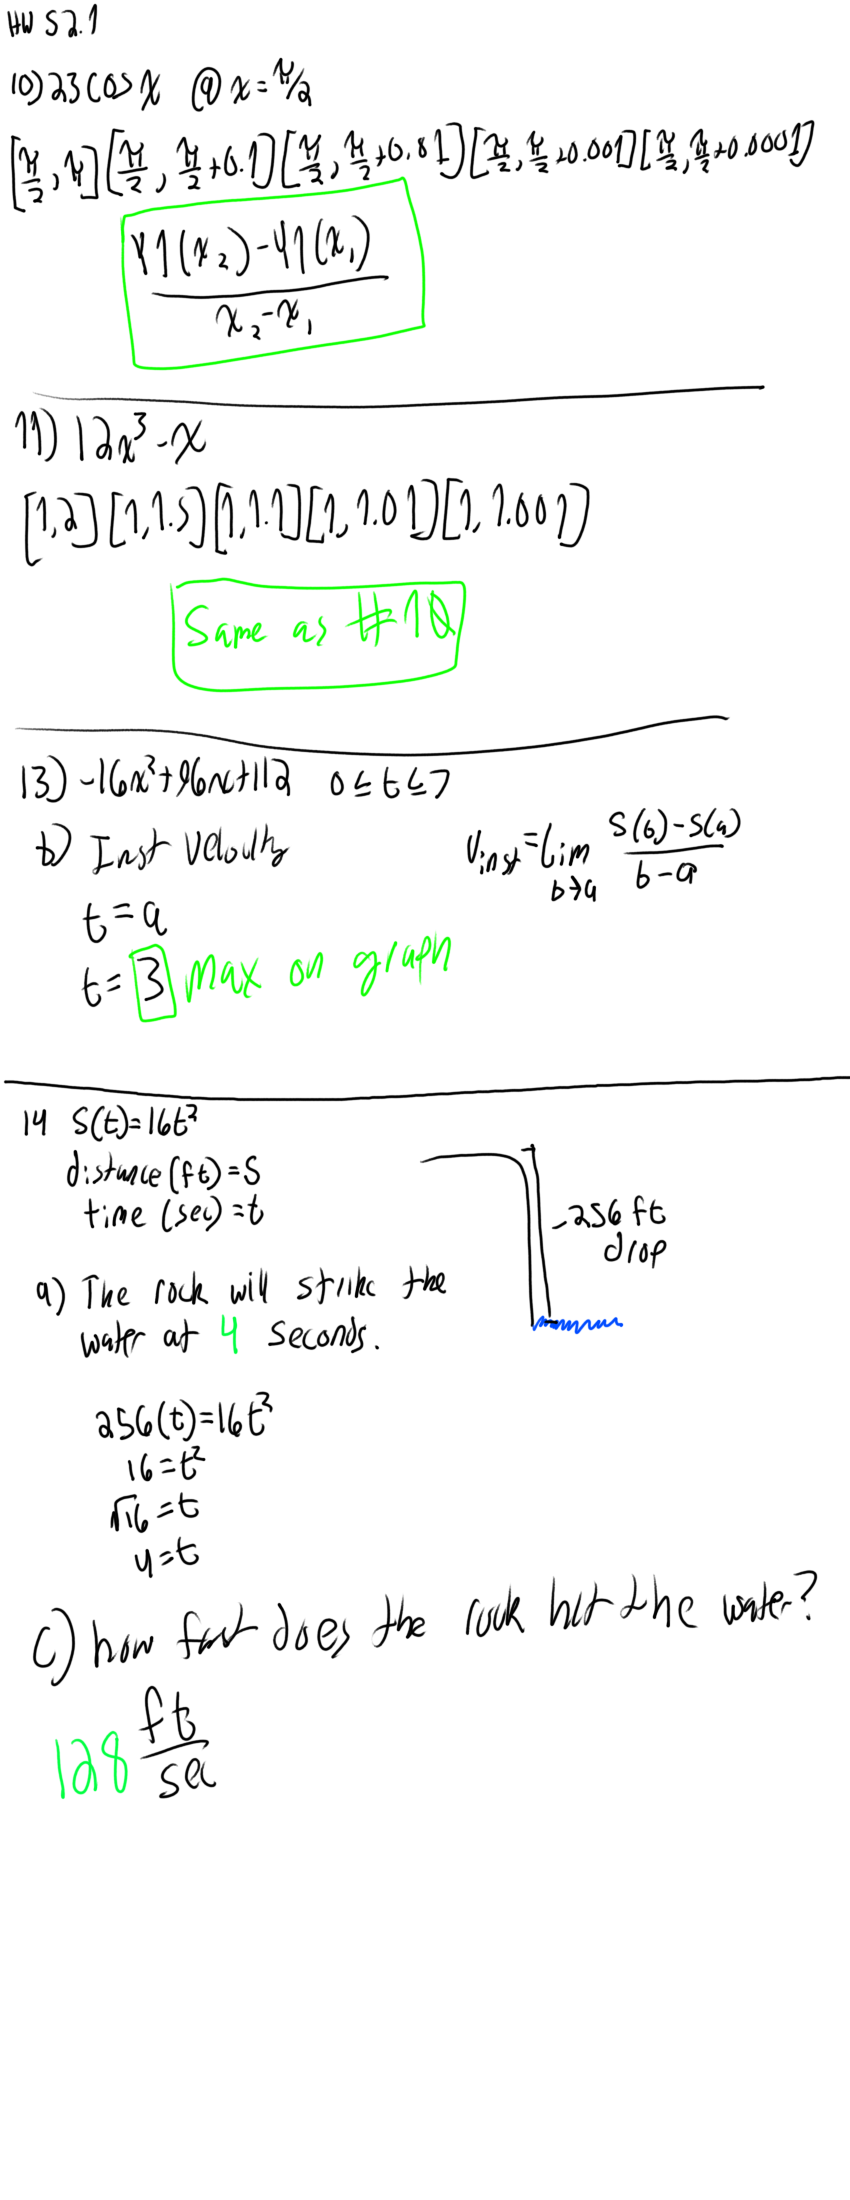 HW S2.1
10) 23cos x @ x = π/2
[π/2, π] [π/2, π/2+0.1] [π/2, π/2+0.01] [π/2, π/2+0.001] [π/2, π/2+0.0001]
Y1(x₂)-Y1(x₁)
x₂-x₁
11) 12x³-x
[1,2] [1,1.5] [1,1.1] [1,1.01] [1,1.001]
Same as #10
13) -16x²+96x+112 0≤t≤7
b) Inst Velocity
V_inst = lim b→a S(b)-S(a) / b-a
t=a
t=3 max on graph
14 S(t)=16t²
distance (ft) = S
time (sec) = t
-256 ft
drop
a) The rock will strike the
water at 4 seconds.
256(t)=16t²
16=t²
√16=t
4=t
c) how fast does the rock hit the water?
128 ft/sec